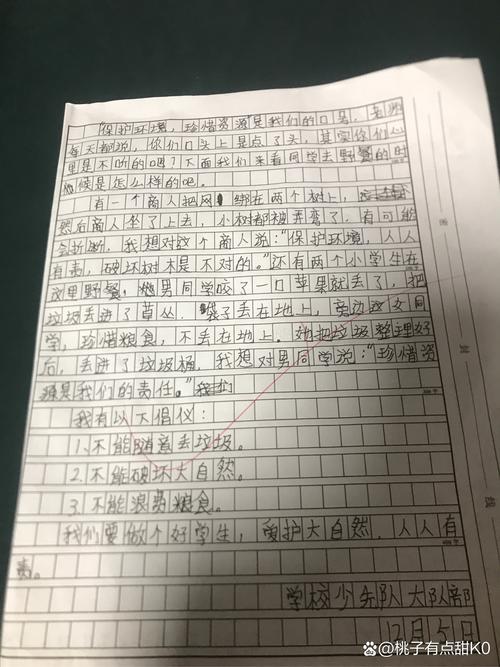 “保护环境，珍惜资源是我们的口号，老师
每天都说，你们口头上是点了头，其实你们心
里是不听的吧？下面我们来看同学去野餐的时
候是怎么样的吧。
有一个商人把网 绑在两个树上，
然后商人坐了上去，小树都被弄弯了，有可能
会折断，我想对这个商人说：“保护环境，人人
有责，破坏树木是不对的。”还有两个小学生在
这里野餐，男同学咬了一口苹果就丢了，把
垃圾丢进了草丛。袋子丢在地上，旁边这女同
学，珍惜粮食，不丢在地上。她把垃圾整理好
后，丢进了垃圾桶，我想对男同学说：“珍惜资
源是我们的责任。”我们
我有以下倡仪：
1.不能随意丢垃圾。
2.不能破坏大自然。
3.不能浪费粮食。
我们要做个好学生，爱护大自然，人人有
责。
学校少先队大队部
12月5日
封
线
Bai百度 @桃子有点甜K0